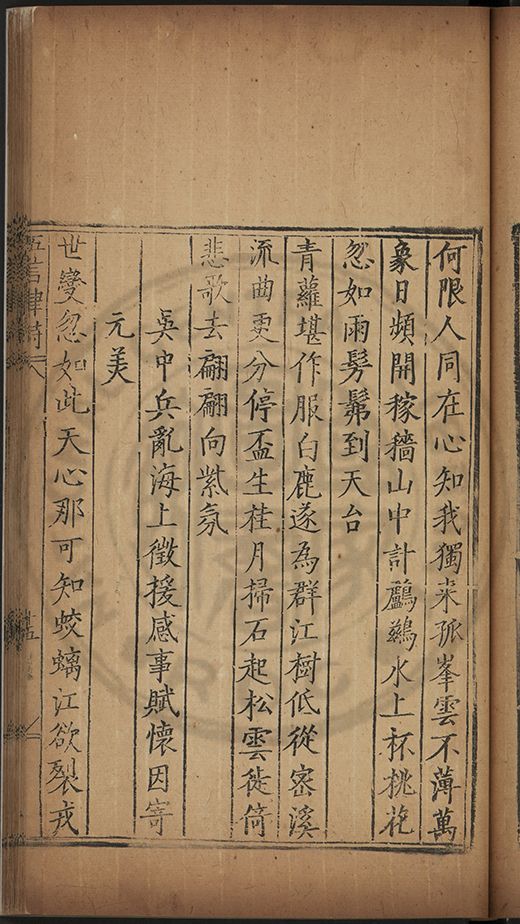 何限人同在心知我獨來孤峯雲不薄萬
象日頻開稼穡山中計鸕鷀水上杯桃花
忽如雨髣髴到天台
青蘿堪作服白鹿遂為群江樹低從密溪
流曲更分停盃生桂月掃石起松雲徙倚
悲歌去翩翩向紫氛
吳中兵亂海上徵援感事賦懷因寄
元美
世變忽如此天心那可知蛟螭江欲裂戎
五言律詩